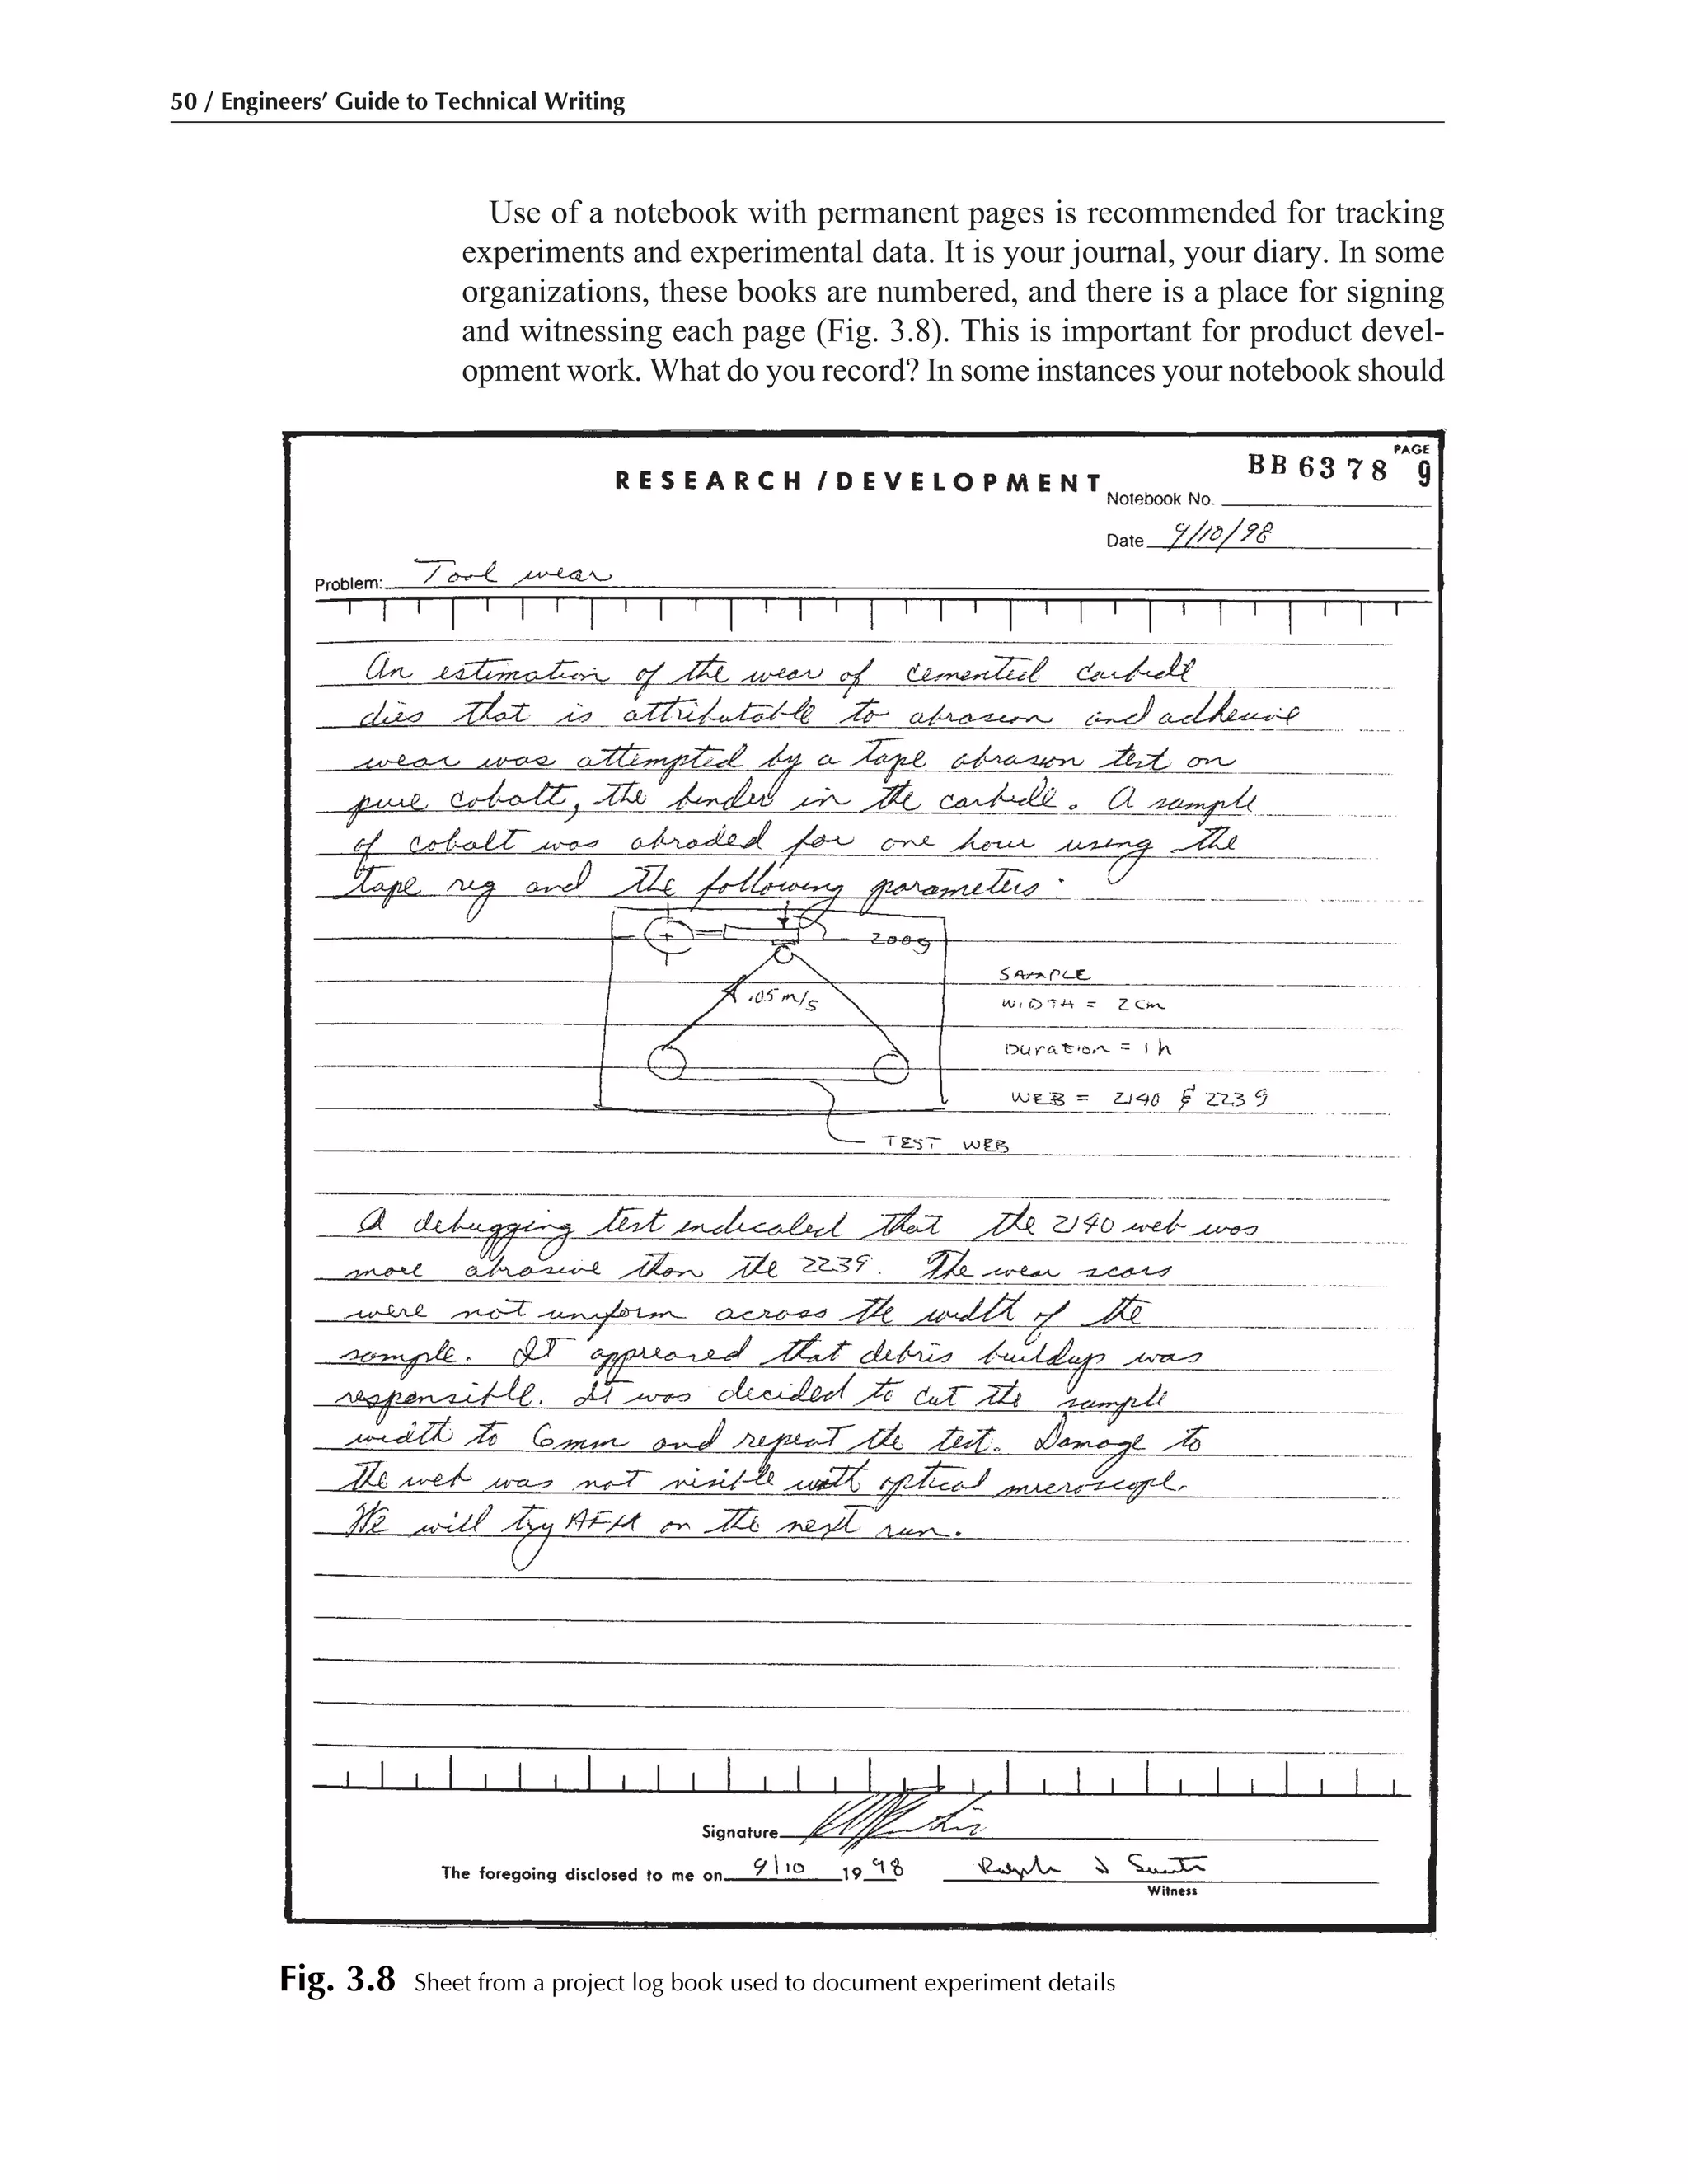 50 / Engineers' Guide to Technical Writing
Use of a notebook with permanent pages is recommended for tracking
experiments and experimental data. It is your journal, your diary. In some
organizations, these books are numbered, and there is a place for signing
and witnessing each page (Fig. 3.8). This is important for product devel-
opment work. What do you record? In some instances your notebook should
PAGE
RESEARCH / DEVELOPMENT
BB 6378 9
Notebook No.
Date 9/10/98
Problem: Tool wear
An estimation of the wear of cemented carbide
dies that is attributable to abrasion and adhesive
wear was attempted by a tape abrasion test on
pure cobalt, the binder in the carbide. A sample
of cobalt was abraded for one hour using the
tape rig and the following parameters:
200g
SAMPLE
.05 m/s
WIDTH = 2 cm
Duration = 1 h
WEB = 2140 & 2239
TEST WEB
A debugging test indicated that the 2140 web was
more abrasive than the 2239. The wear scars
were not uniform across the width of the
sample. It appreared that debris buildup was
responsible. It was decided to cut the sample
width to 6mm and repeat the test. Damage to
the web was not visible with optical microscope.
We will try AFM on the next run.
Signature
The foregoing disclosed to me on 9/10 1998 Ralph
Witness
Fig. 3.8 Sheet from a project log book used to document experiment details